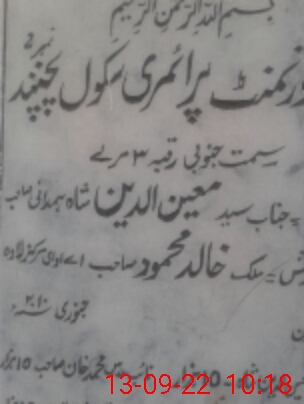 بسم اللہ الرحمن الرحیم
گورنمنٹ پرائمری سکول نمبر 2
سمت جنوبی رقبہ ۳ مرلے
جناب سید معین الدین شاہ ہمدانی صاحب
ملک خالد محمود صاحب اے ای او مرکز لادہ
جنوری ۲۰۱۰ء
محمد خان صاحب ۱۵ ہزار
13-09-22 10:18